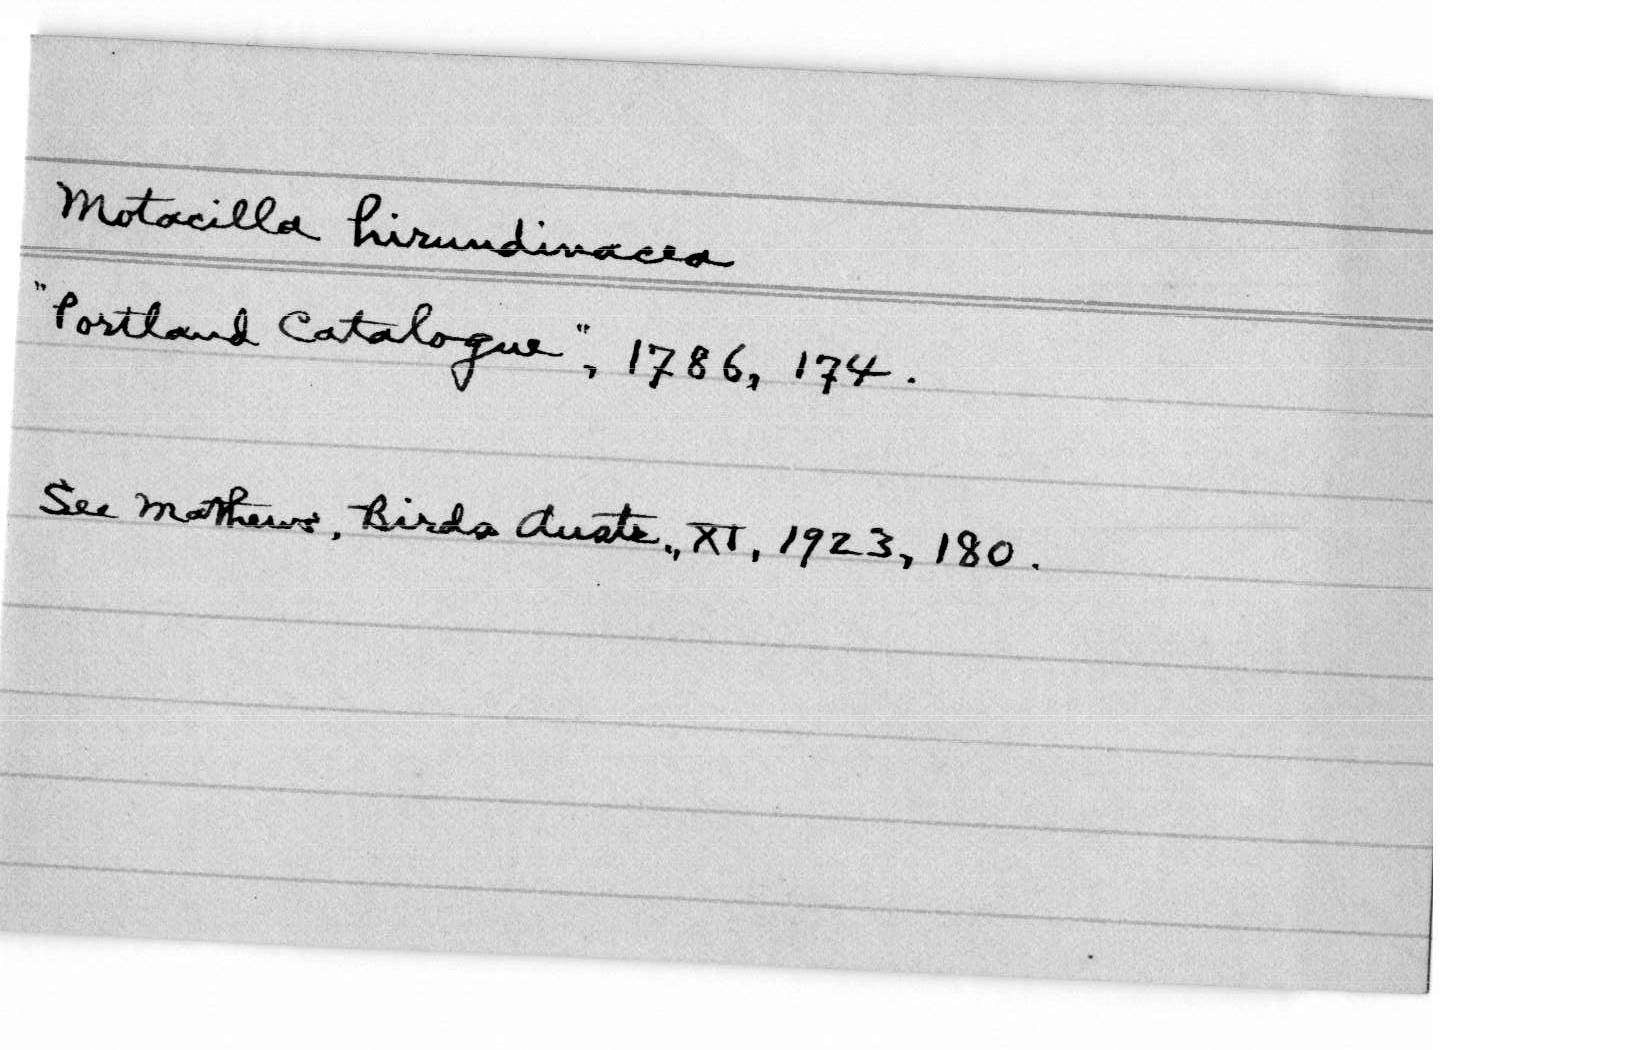 Motacilla hirundinacea
"Portland Catalogue", 1786, 174.
See Mathews, Birds Austr., XI, 1923, 180.